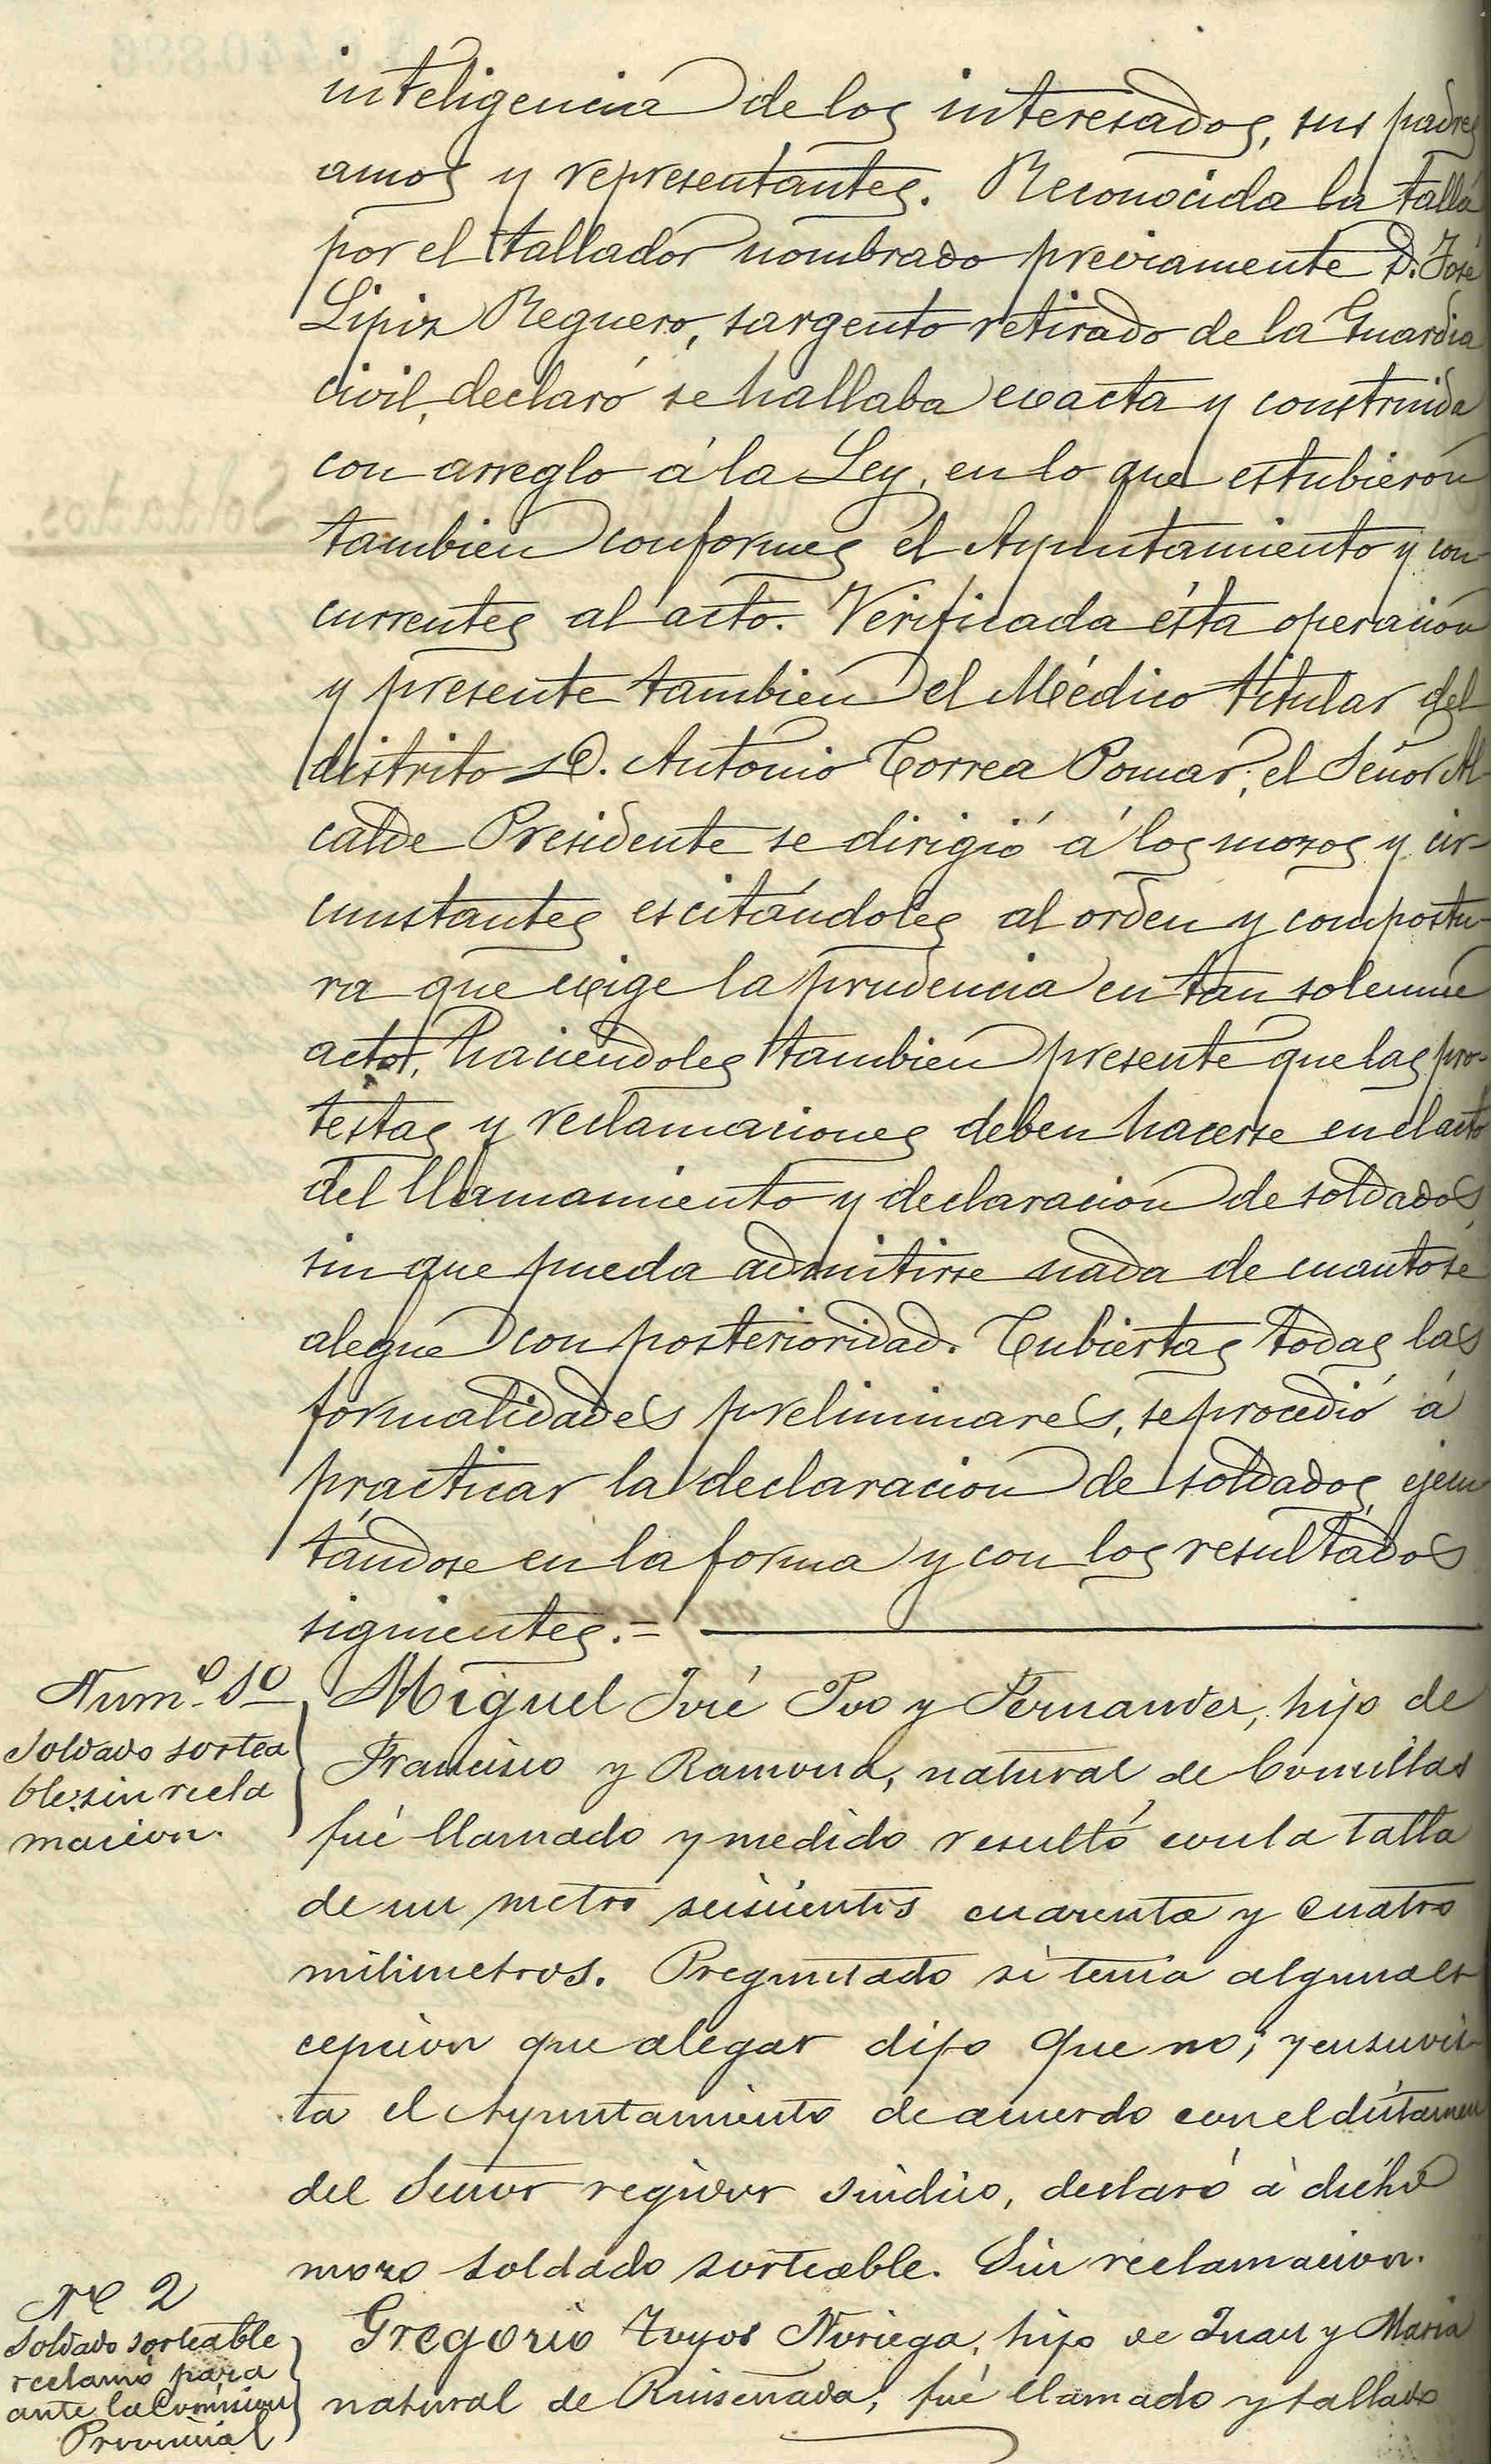 inteligencia de los interesados, sus padres
amos y representantes. Reconocida la talla
por el tallador nombrado previamente D. José
Lipiz Reguero, sargento retirado de la Guardia
civil, declaró se hallaba exacta y construida
con arreglo á la Ley, en lo que estubieron
tambien conformes el Ayuntamiento y con-
currentes al acto. Verificada ésta operacion
y presente tambien el Médico titular del
distrito D. Antonio Correa Pomar; el Señor Al-
calde Presidente se dirigió á los mozos y cir-
cunstantes escitándoles al orden y compostu-
ra que exige la prudencia en tan solemne
acto, haciendoles tambien presente que las pro-
testas y reclamaciones deben hacerse en el acto
del llamamiento y declaracion de soldados,
sin que pueda admitirse nada de cuanto se
alegue con posterioridad. Cubiertas todas las
formalidades preliminares, se procedió á
practicar la declaracion de soldados, ejecu
tándose en la forma y con los resultados
siguientes.=
Num.º 1º
Soldado sortea
ble. sin recla
macion.
Miguel José Poo y Fernandez, hijo de
Francisco y Ramona, natural de Comillas
fué llamado y medido resultó con la talla
de un metro seiscientos cuarenta y cuatro
milimetros. Preguntado si tenia alguna es-
cepcion que alegar dijo que no; y en su vis-
ta el Ayuntamiento de acuerdo con el dictamen
del Señor regidor sindico, declaró á dicho
mozo soldado sorteable. Sin reclamacion.
Nº 2
Soldado sorteable
reclamó para
ante la Comision
Provincial
Gregorio Noriega, hijo de Juan y Maria
natural de Ruiseñada, fué llamado y tallado